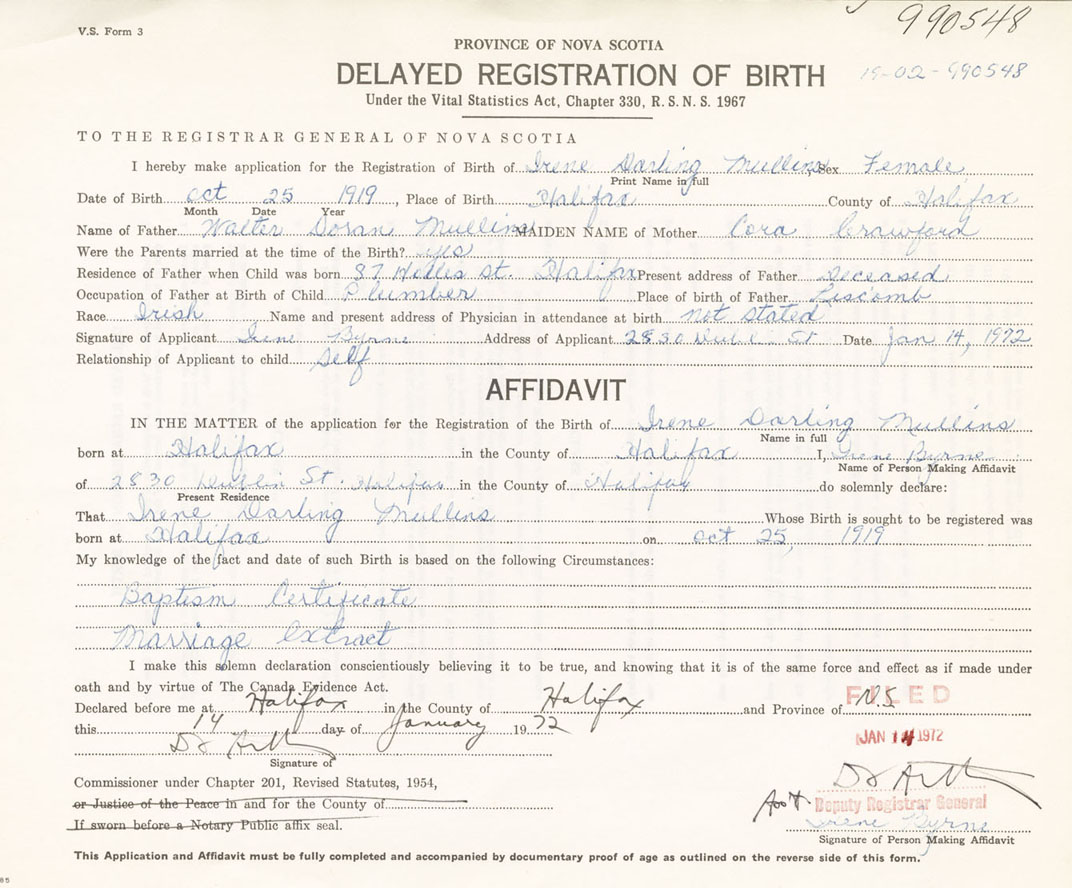 V.S. Form 3
990548
PROVINCE OF NOVA SCOTIA
DELAYED REGISTRATION OF BIRTH 19-02-990548
Under the Vital Statistics Act, Chapter 330, R. S. N. S. 1967
TO THE REGISTRAR GENERAL OF NOVA SCOTIA
I hereby make application for the Registration of Birth of Irene Darling Mullins, Sex Female
Print Name in full
Date of Birth Oct 25 1919, Place of Birth Halifax County of Halifax
Month Date Year
Name of Father Walter Doran Mullins MAIDEN NAME of Mother Cora Crawford
Were the Parents married at the time of the Birth? yes
Residence of Father when Child was born 87 St. Halifax Present address of Father Deceased
Occupation of Father at Birth of Child Plumber Place of birth of Father Liscomb
Race Irish Name and present address of Physician in attendance at birth not stated
Signature of Applicant Irene Byrne Address of Applicant 2830 St Date Jan 14, 1972
Relationship of Applicant to child Self
AFFIDAVIT
IN THE MATTER of the application for the Registration of the Birth of Irene Darling Mullins
Name in full
born at Halifax in the County of Halifax I, Irene Byrne
Name of Person Making Affidavit
of 2830 St. Halifax in the County of Halifax do solemnly declare:
Present Residence
That Irene Darling Mullins Whose Birth is sought to be registered was
born at Halifax on Oct 25, 1919
My knowledge of the fact and date of such Birth is based on the following Circumstances:
Baptism Certificate
Marriage extract
I make this solemn declaration conscientiously believing it to be true, and knowing that it is of the same force and effect as if made under
oath and by virtue of The Canada Evidence Act.
Declared before me at Halifax in the County of Halifax and Province of N.S.
FILED
this 14 day of January 1972
JAN 14 1972
Signature of
Commissioner under Chapter 201, Revised Statutes, 1954,
or Justice of the Peace in and for the County of
Ass't. Deputy Registrar General
If sworn before a Notary Public affix seal.
Irene Byrne
Signature of Person Making Affidavit
This Application and Affidavit must be fully completed and accompanied by documentary proof of age as outlined on the reverse side of this form.